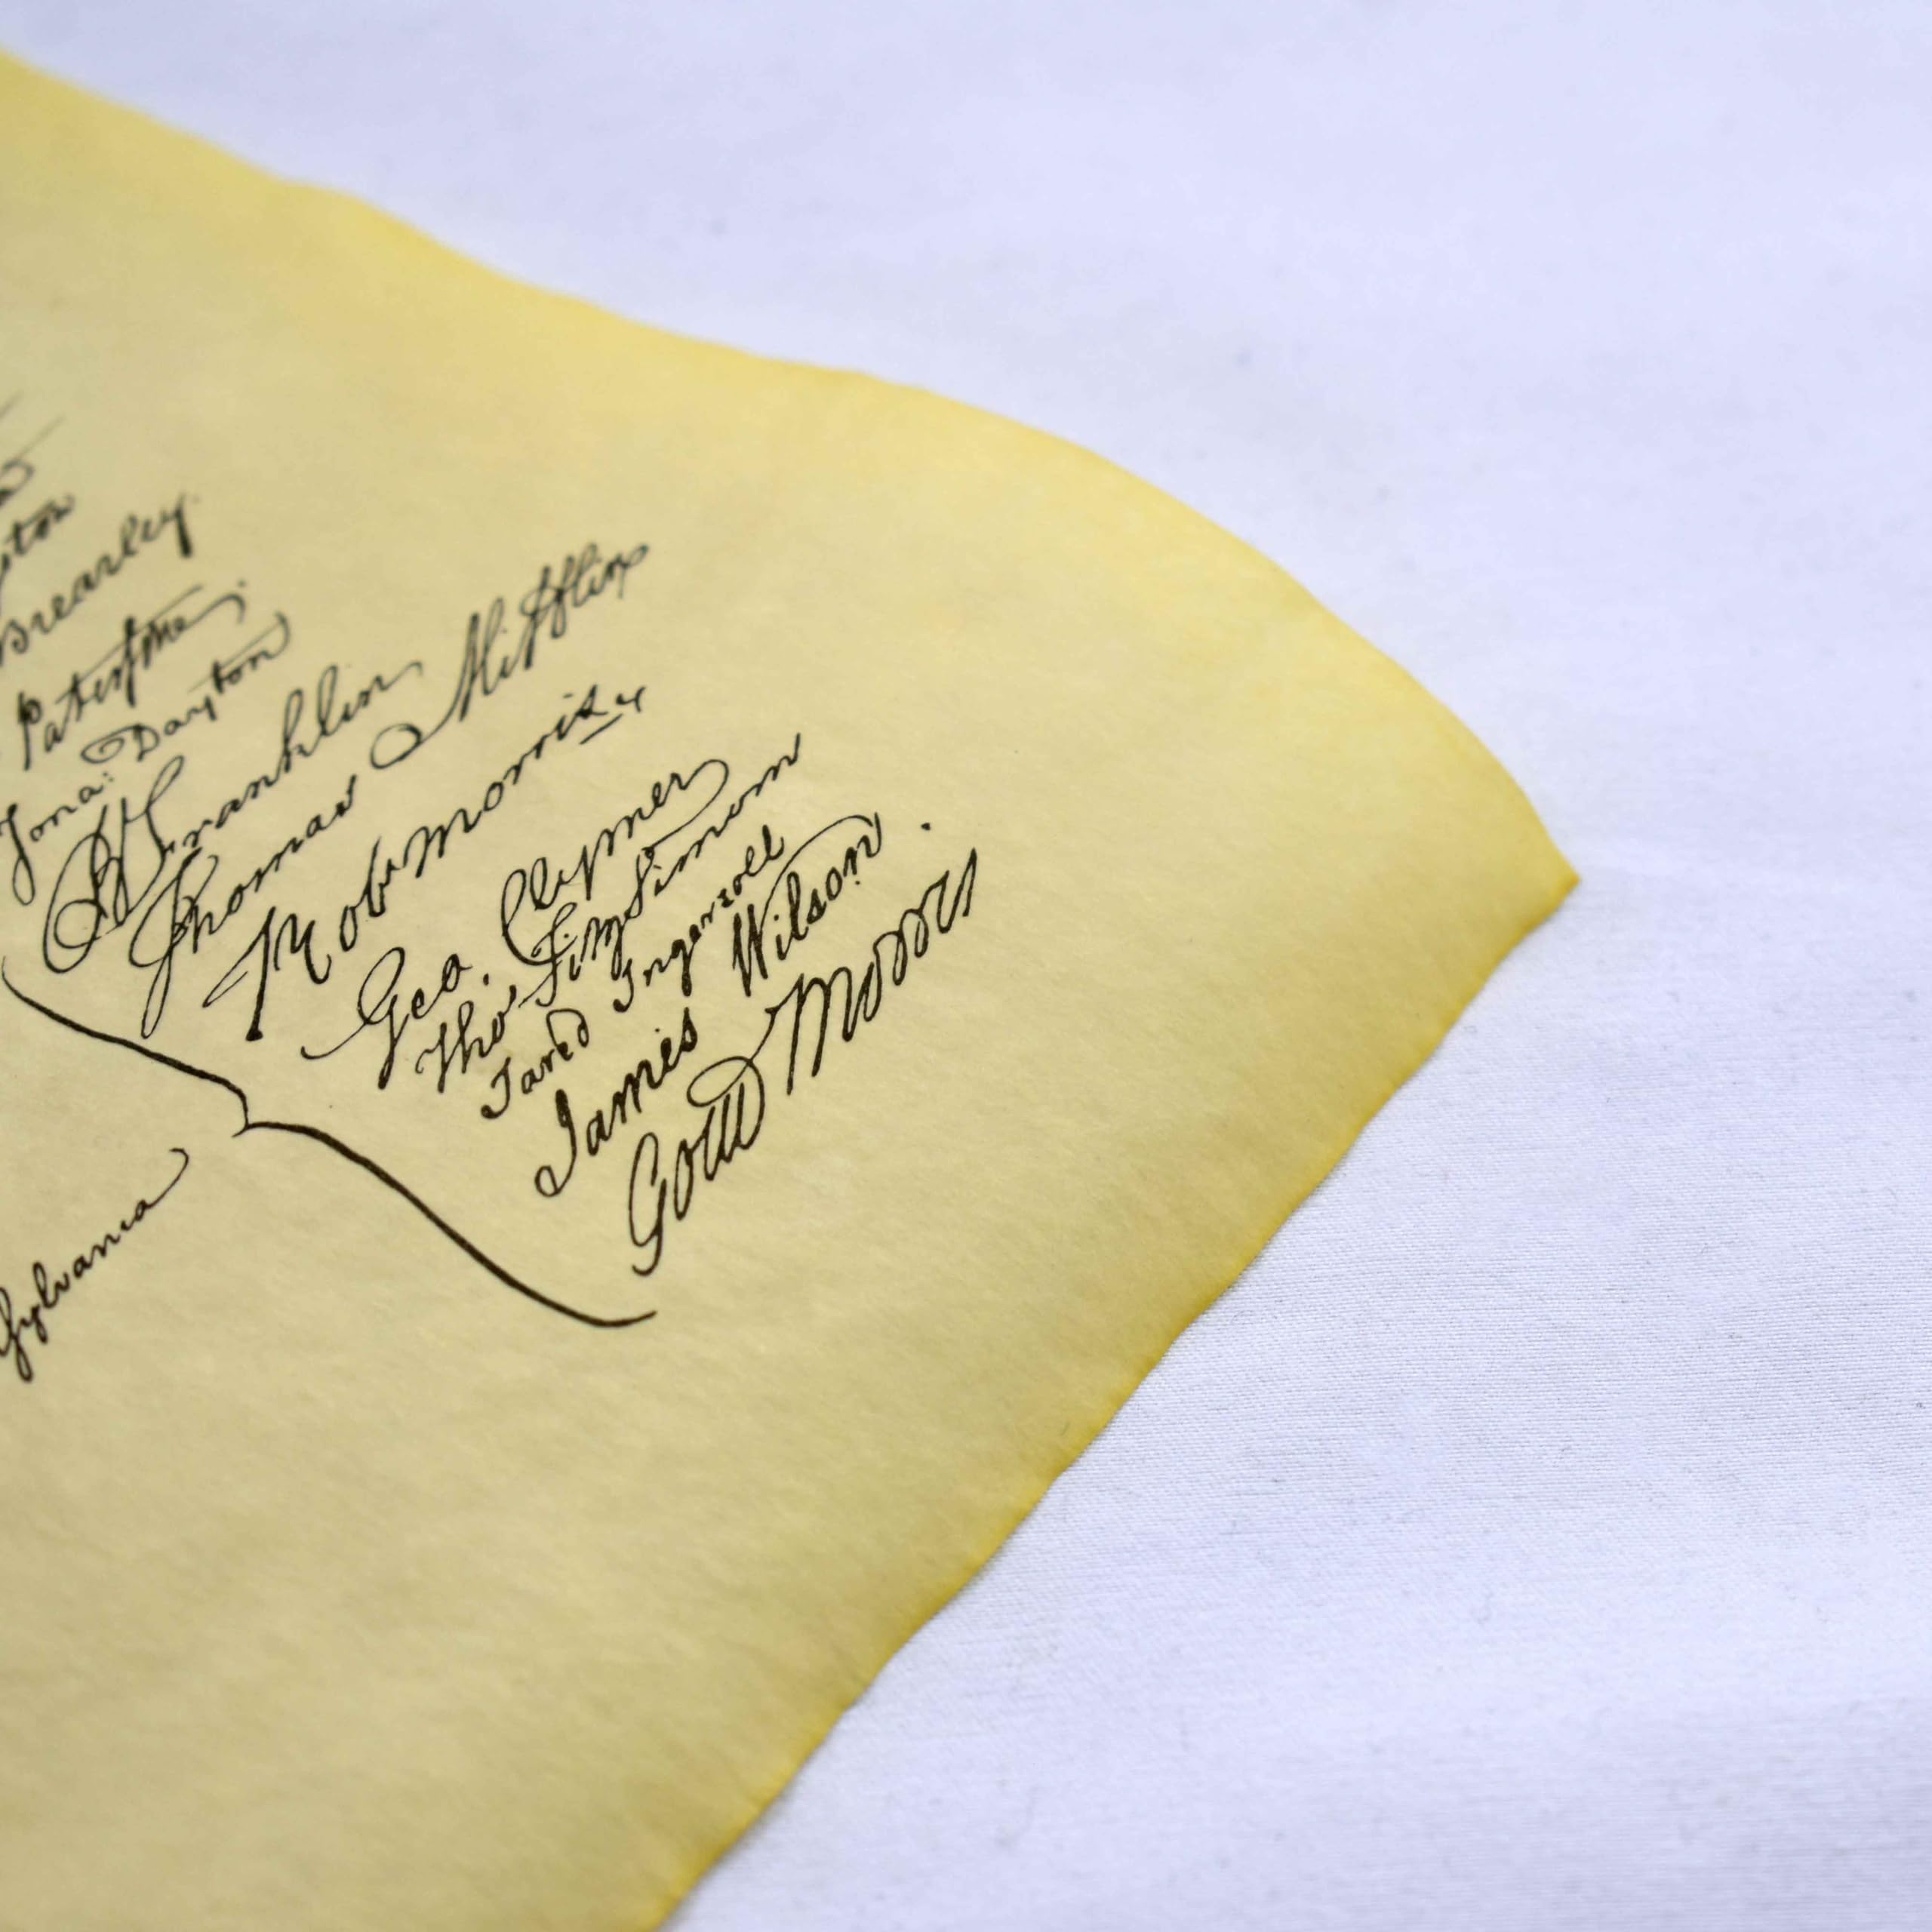 Brearley.
Paterson.
Jona: Dayton
B Franklin
Thomas Mifflin
Robt Morris
Geo. Clymer
Thos FitzSimons
Jared Ingersoll
James Wilson.
Gouv Morris
sylvania